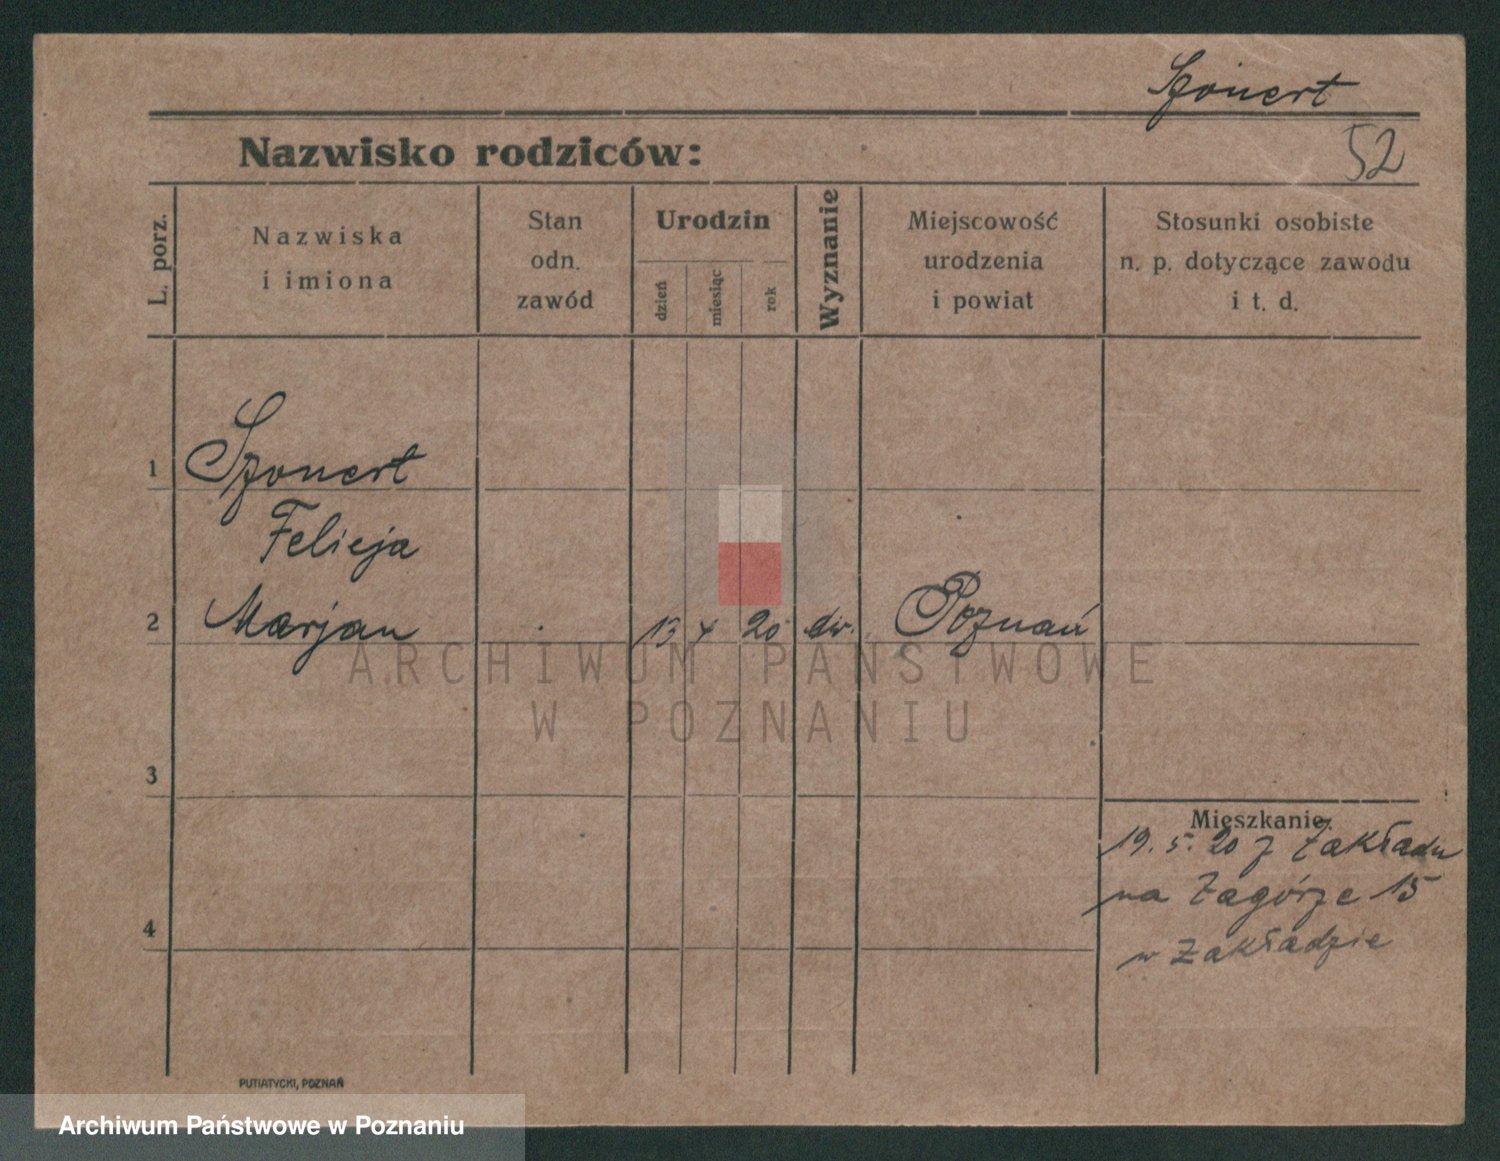 Szonert
52
Nazwisko rodziców:
L. porz.
Nazwiska
i imiona
Stan
odn.
zawód
Urodzin
dzień
miesiąc
rok
Wyznanie
Miejscowość
urodzenia
i powiat
Stosunki osobiste
n. p. dotyczące zawodu
i t. d.
1
Szonert
Felicja
2
Marjan
13 4 20
Poznań
ARCHIWUM PAŃSTWOWE
W POZNANIU
3
Mieszkanie:
19. 5. 20 z Zakładu
na Zagórze 15
w Zakładzie
4
PUTIATYCKI, POZNAŃ
Archiwum Państwowe w Poznaniu